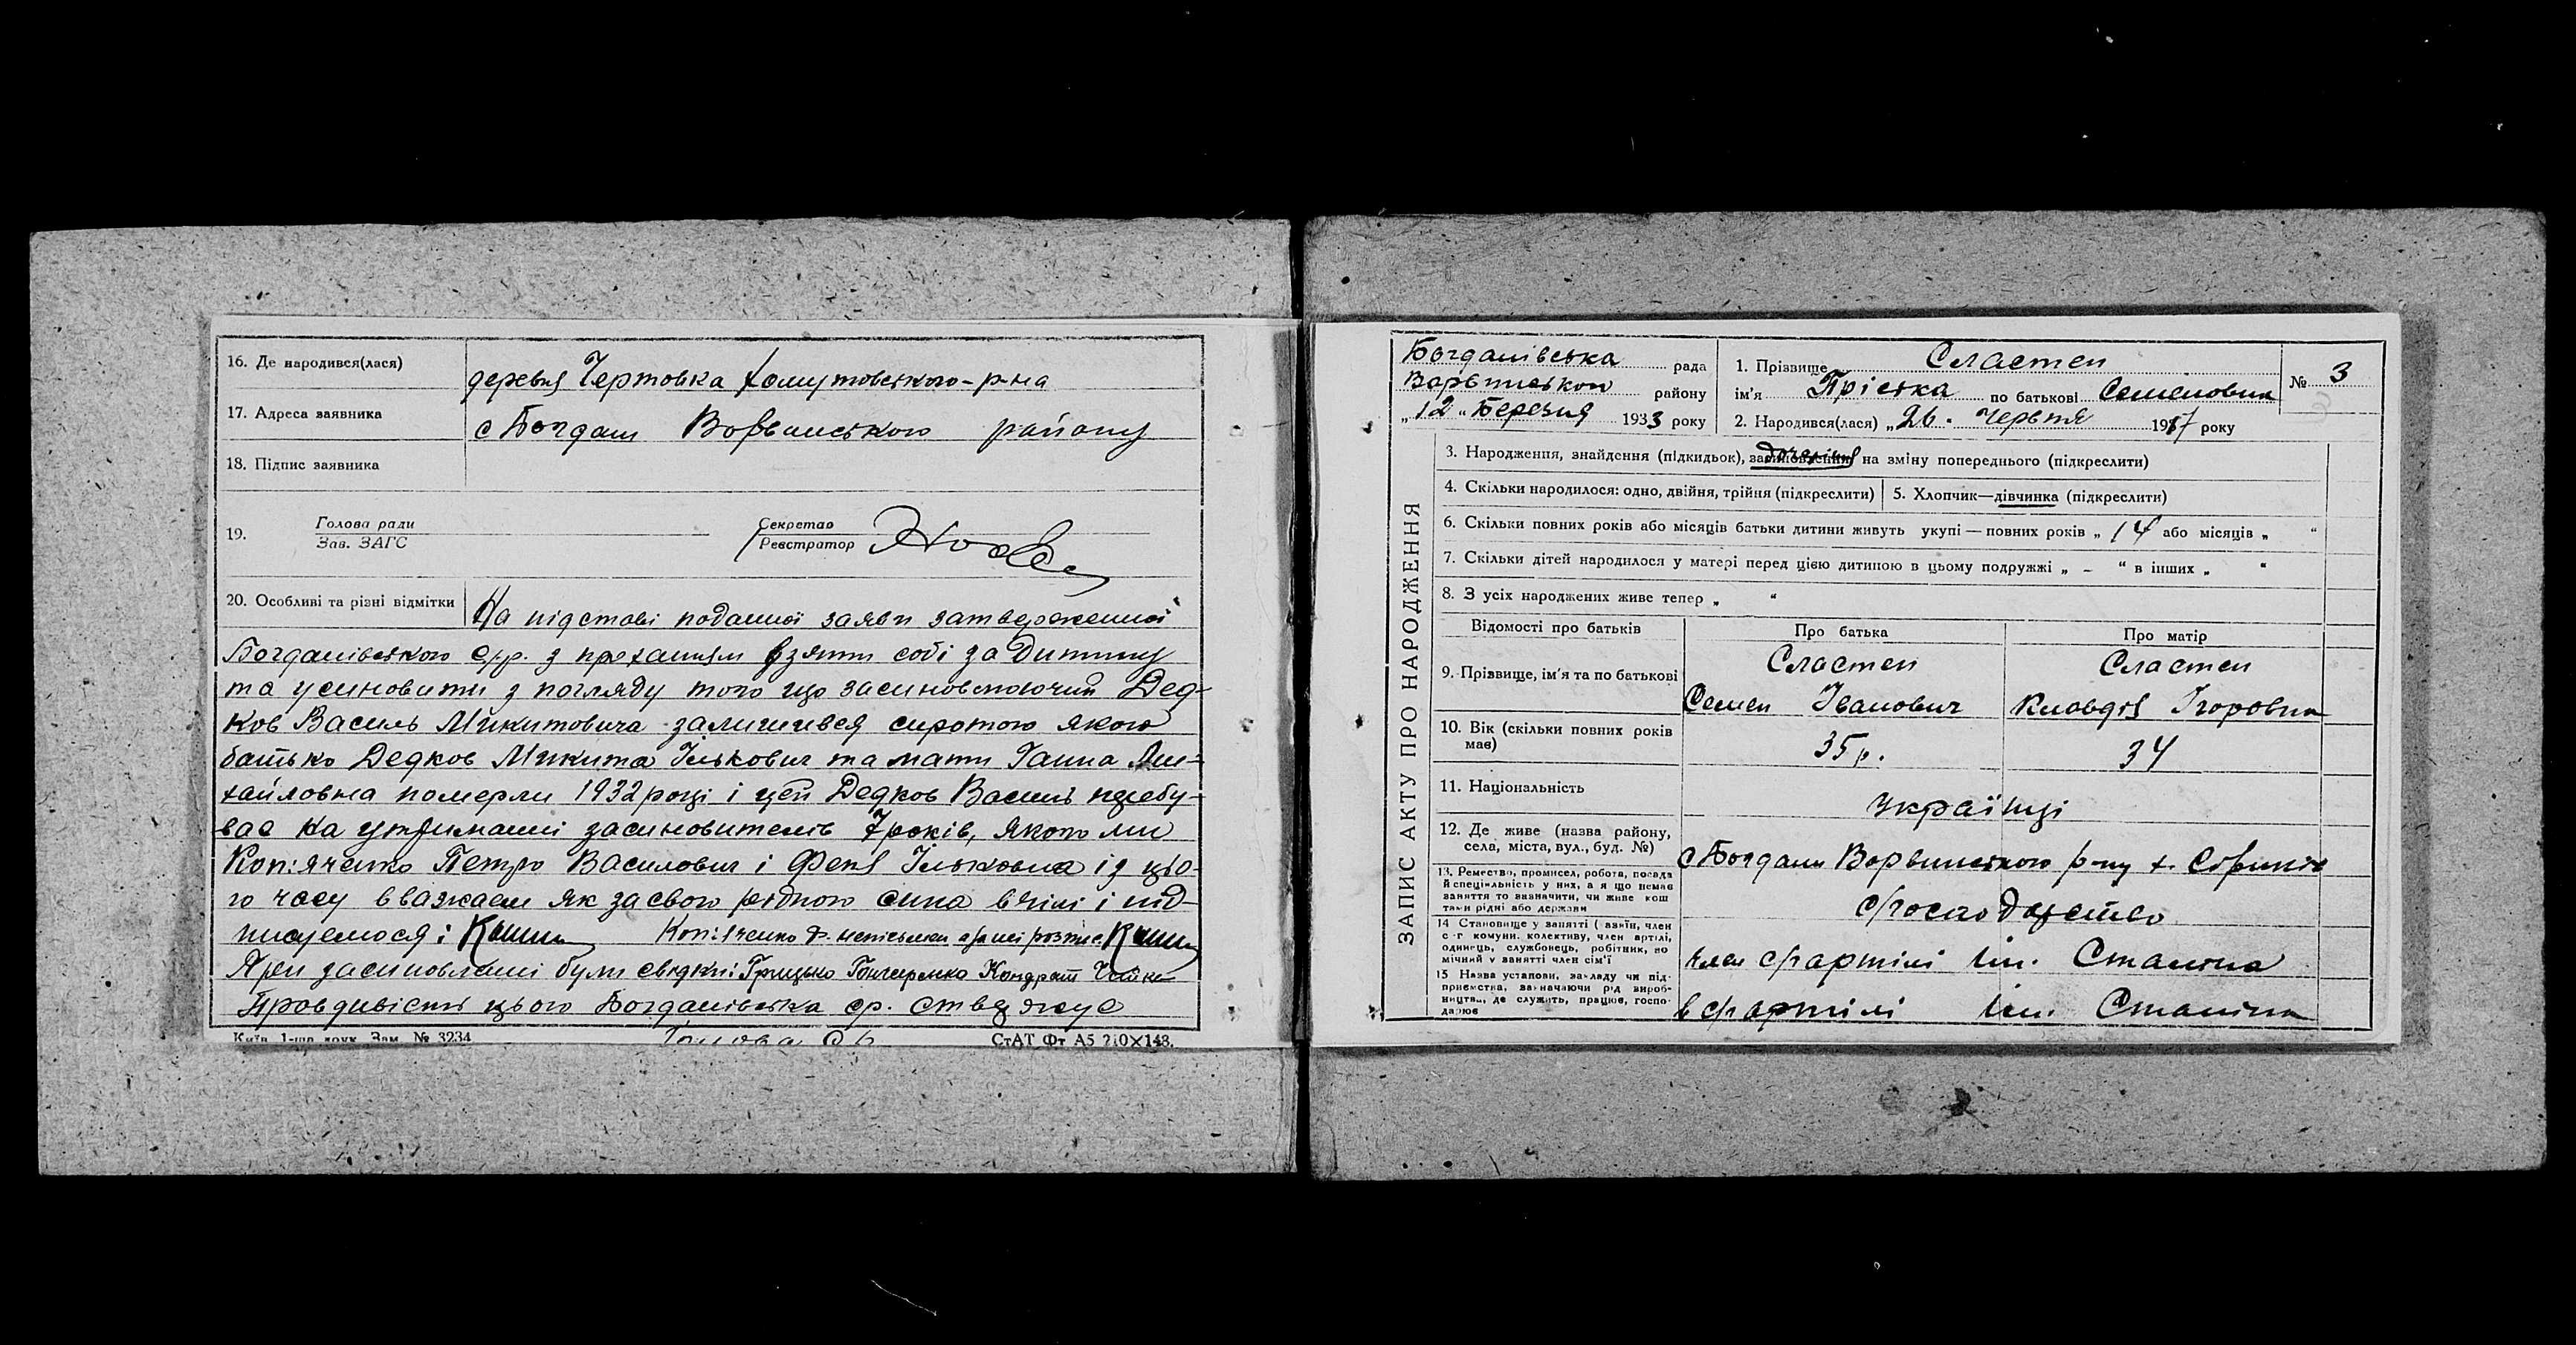 16. Де народився(лася)
деревня Чертовка Хомутовського-р-на
17. Адреса заявника
с Богдани Варвинського району
18. Підпис заявника
19.
Голова ради
Зав. ЗАГС
Секретар
Реєстратор
20. Особливі та різні відмітки
На підставі поданної заяви затвердженної
Богданівського с/р. з проханням взяти собі за дитину
та усиновити з погляду того що засиновлюючий Дед-
ков Василь Микитовича залишився сиротою якого
батько Дедков Микита Ількович та мати Ганна Ми-
хайловна померли 1932 році і цей Дедков Василь пребу-
ває на утриманні засиновителів 7 років, якого ми
Коп:яченко Петро Василович і Феня Ільковна із цьо-
го часу вважаєм як за свого рідного сина вічіні і під-
писуємося:
Коп:яченко Ф. неписьмен
При засиновлені були свідки: Грицько Кондрат
Правдивість цього Богданівська ср. ствержує
Київ, 1-ша друк. Зам. № 3234
Голова
СтАТ Фт А5 210×148.
ЗАПИС АКТУ ПРО НАРОДЖЕННЯ
Богданівська рада
Варвинського району
„12“ Березня 1933 року
1. Прізвище Сластен
ім'я Пріська по батькові Семеновна
№ 3
2. Народився(лася) „26. Червня 1917 року
3. Народження, знайдення (підкидьок), засиновлення на зміну попереднього (підкреслити)
4. Скільки народилося: одно, двійня, трійня (підкреслити)
5. Хлопчик—дівчинка (підкреслити)
6. Скільки повних років або місяців батьки дитини живуть укупі — повних років „ 14 або місяців „ “
7. Скільки дітей народилося у матері перед цією дитиною в цьому подружжі „ – “ в інших „ “
8. З усіх народжених живе тепер „ “
Відомості про батьків
Про батька
Про матір
9. Прізвище, ім'я та по батькові
Сластен
Сластен
Семен Іванович
Кловдя Ігоровна
10. Вік (скільки повних років має)
35 р.
34
11. Національність
Українці
12. Де живе (назва району, села, міста, вул., буд. №)
с Богдани Варвинського р-ну х.
13. Ремество, промисел, робота, посада
й спеціяльність у них, а я що немає
заняття то зазначити, чи живе кош
тами рідні або держави
с/господарство
14 Становище у занятті ( азяїн, член
с-г комуни, колективу, член артілі,
одинець, службовець, робітник, по
мічний у занятті член сім'ї
член с/г артілі ім. Сталіна
15 Назва установи, закладу чи під-
приємства, зазначаючи рід вироб-
ництва, де служить, працює, госпо-
дарює
в с/г артілі ім. Сталіна